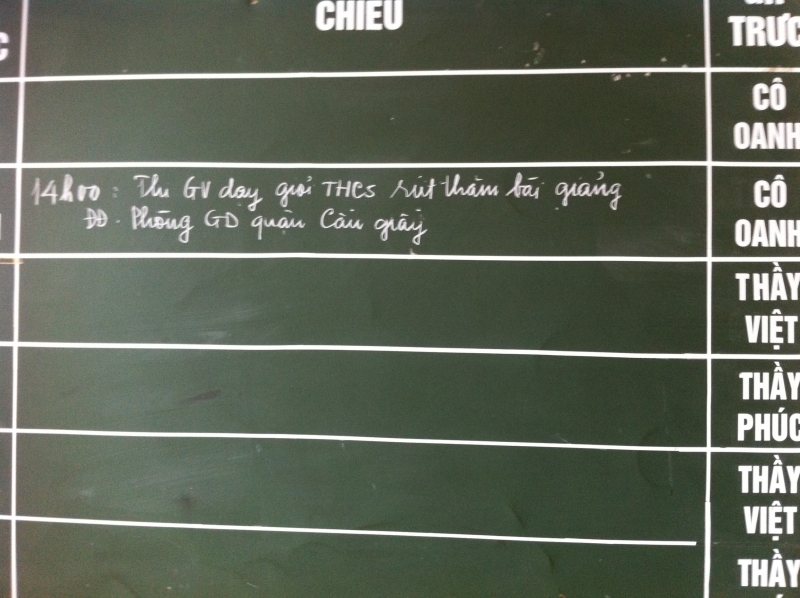 CHIỀU
TRỰC
CÔ
OANH
14h00 : Thi GV dạy giỏi THCS rút thăm bài giảng
ĐĐ. Phòng GD quận Cầu giấy
CÔ
OANH
THẦY
VIỆT
THẦY
PHÚC
THẦY
VIỆT
THẦY